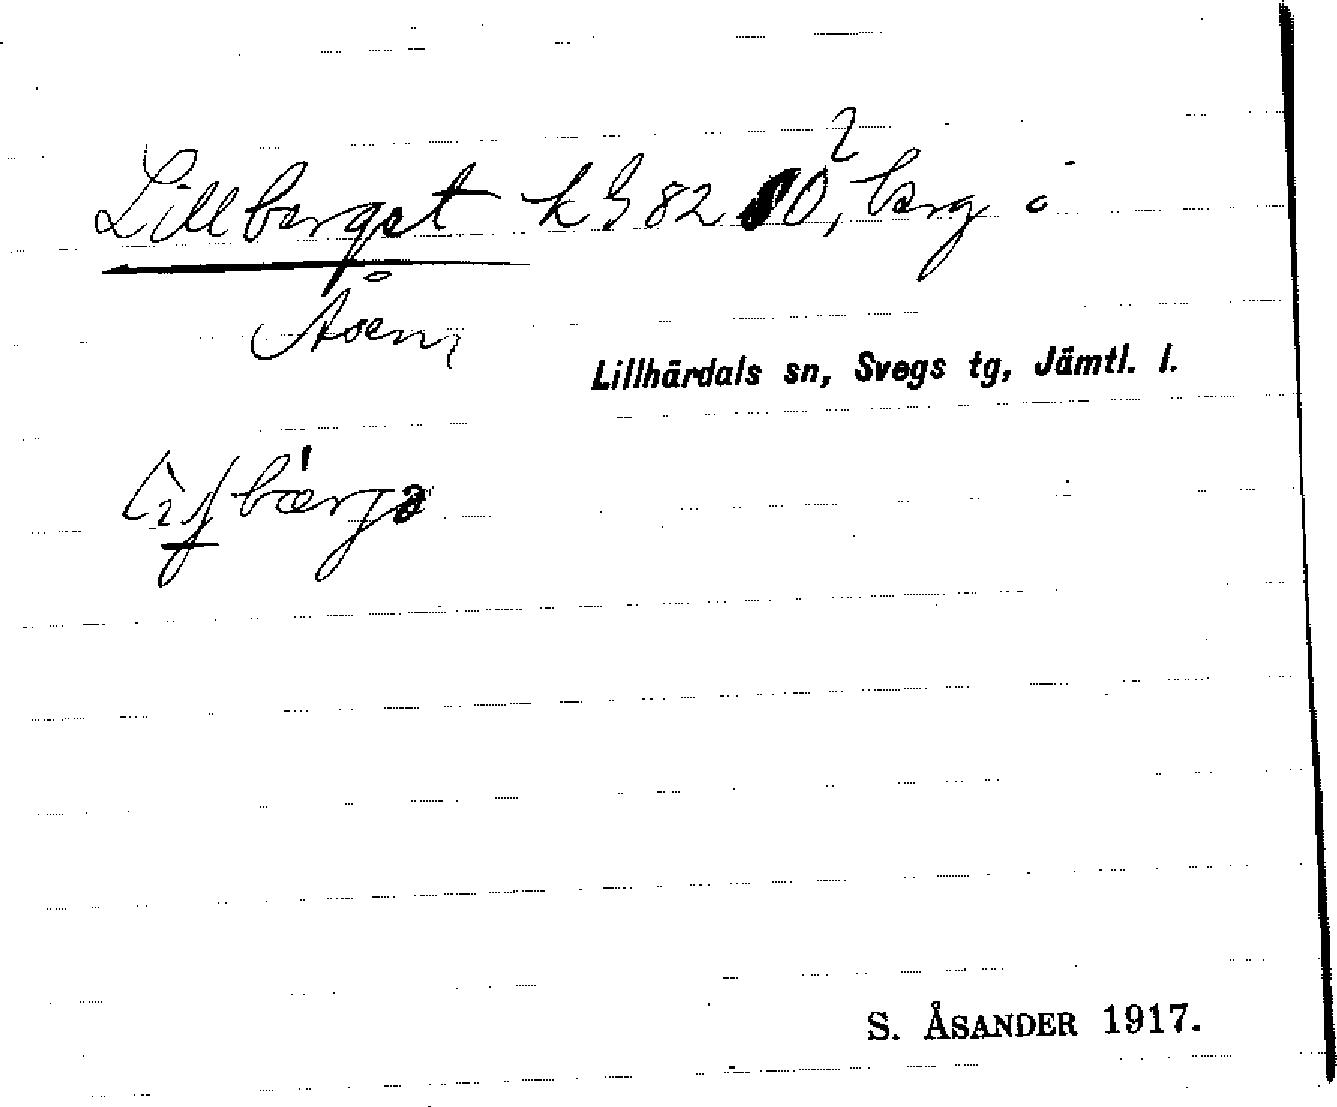 Lillberget k З 82 SO², berg ö
Åsen,
Lillhärdals sn, Svegs tg, Jämtl. l.
bærja
S. ÅSANDER 1917.